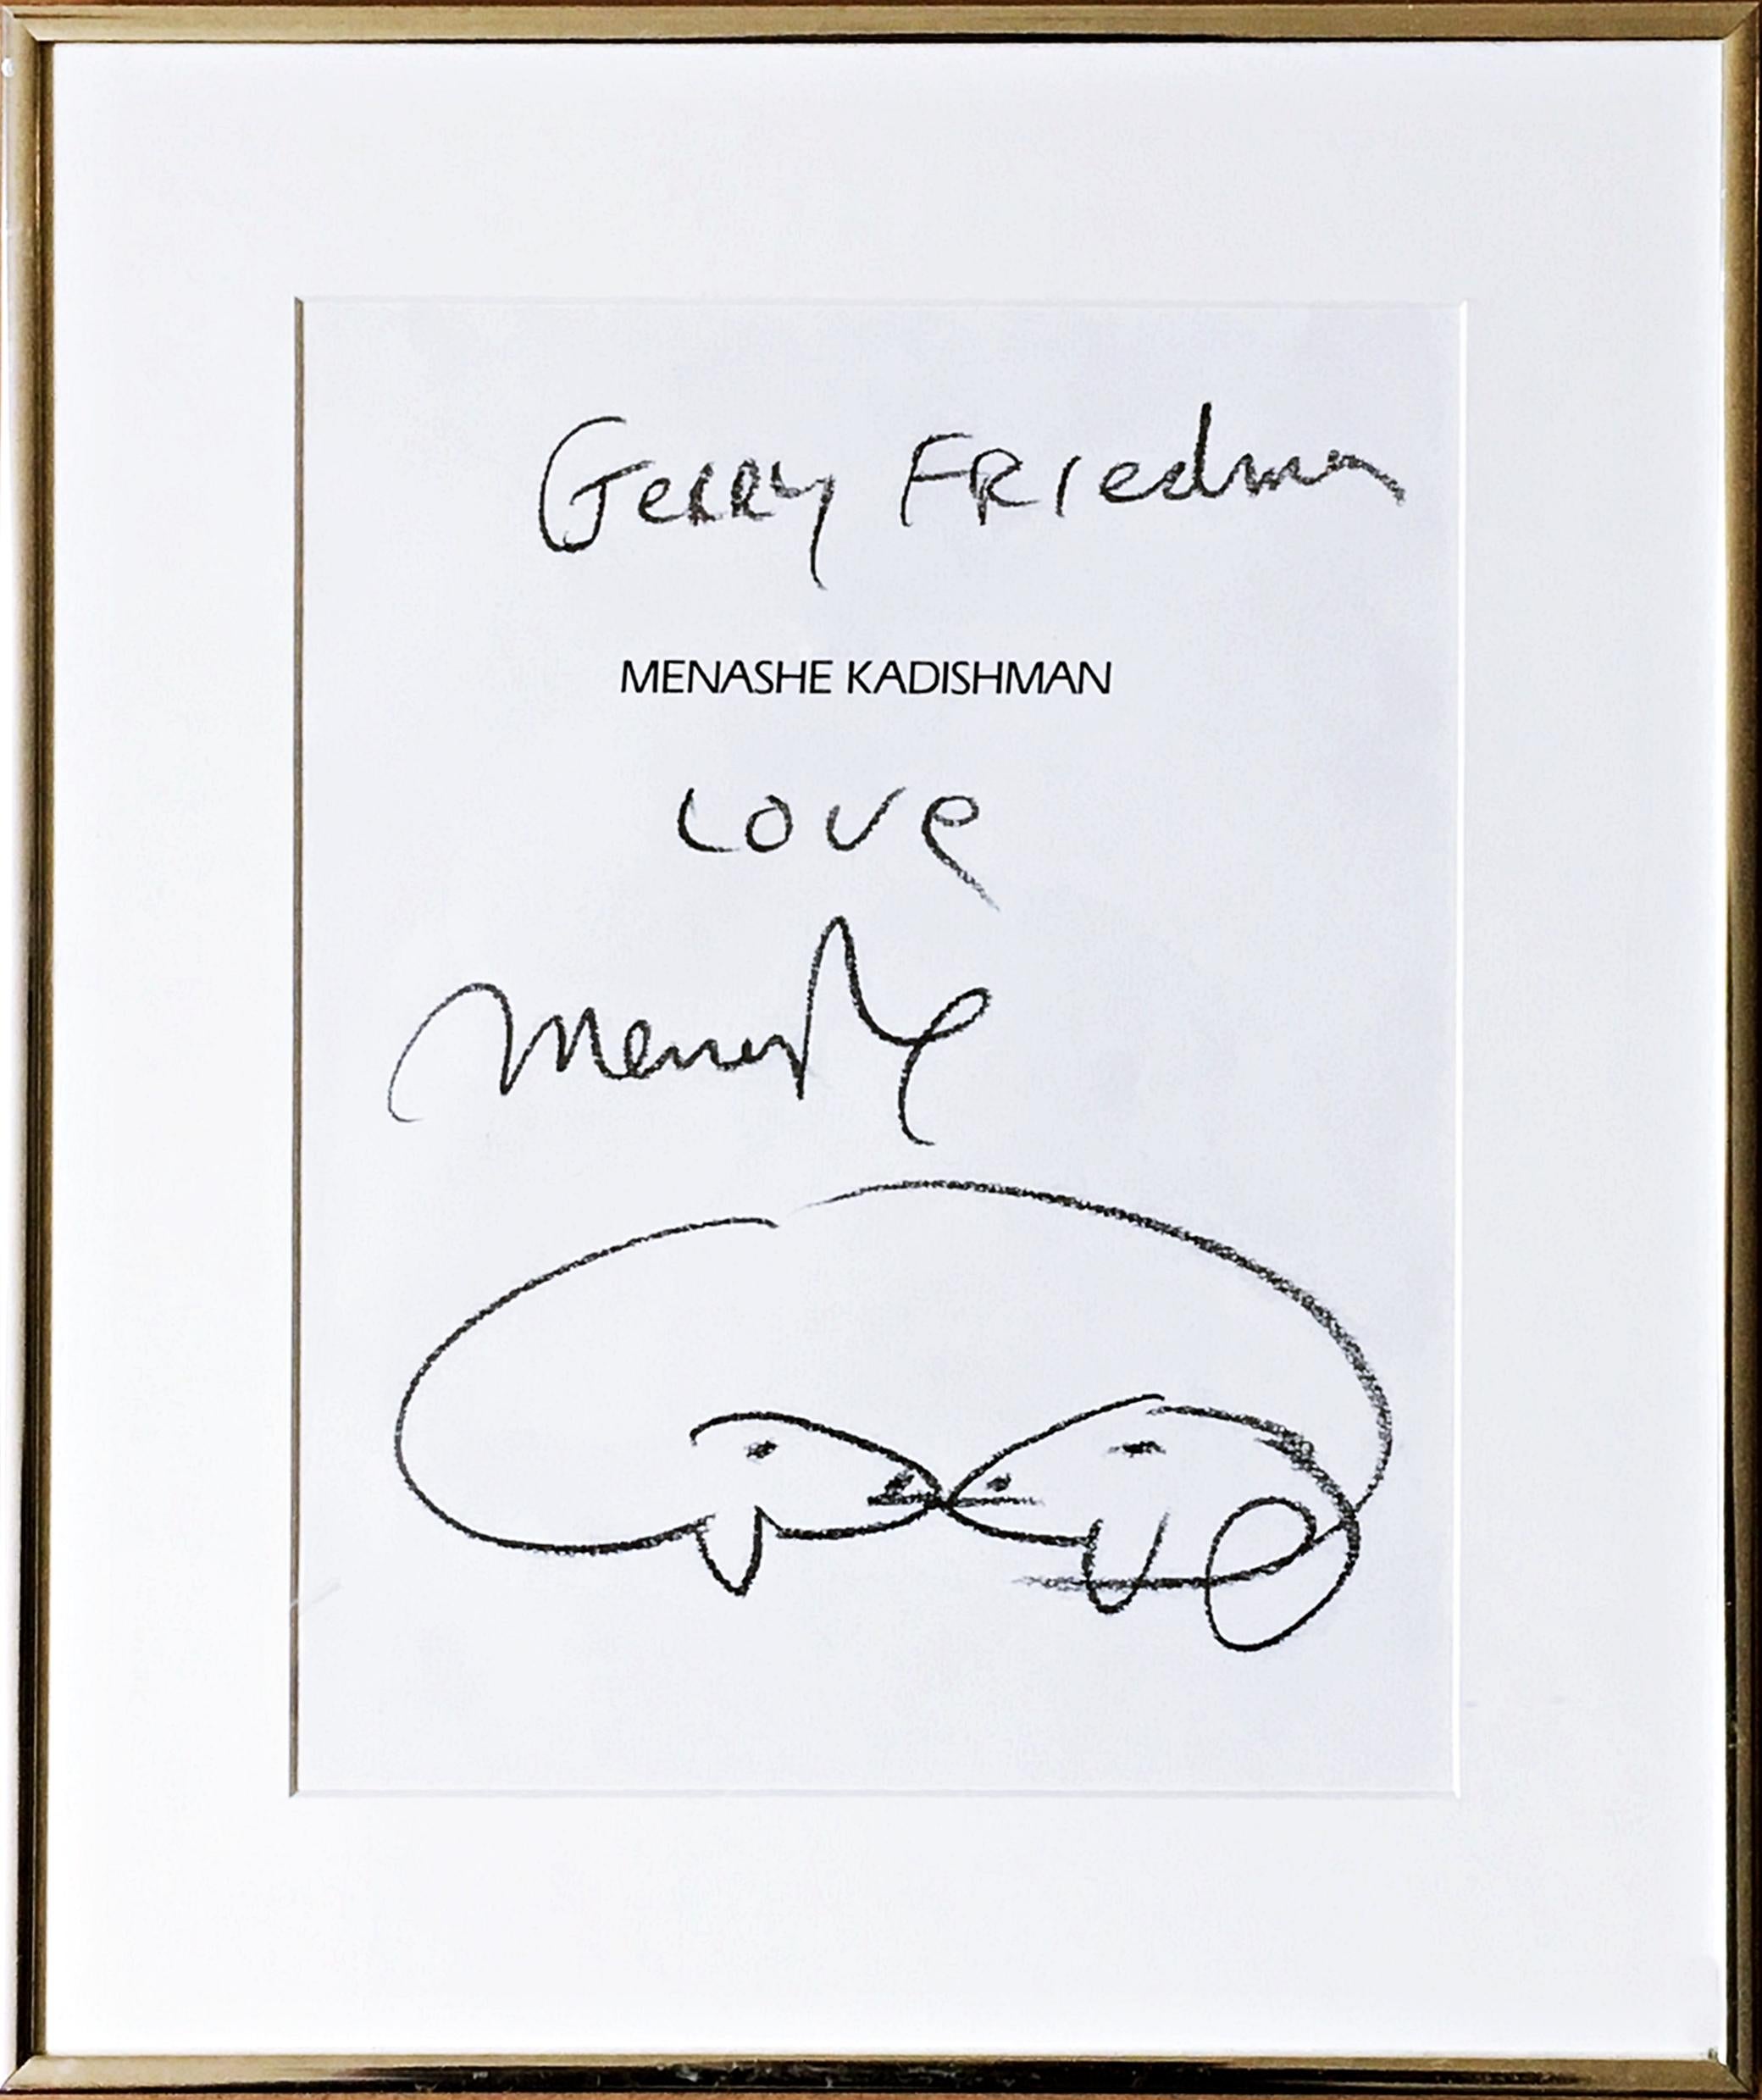 Gerry Friedman
MENASHE KADISHMAN
Love
Menashe